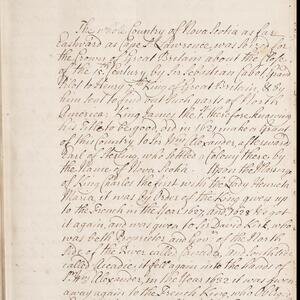 The whole Country of Nova Scotia as far
Eastward as Cape St Lawrence, was seized for
the Crown of Great Britain about the Close
of the 15 Century by Sir Sebastian Cabot, Grand
Pilot to Henry 7th King of Great Britain, & by
him sent to find out such parts of North
America: King James the 1st therefore knowing
his Title to be good did in 1621 make a Grant
of this Country to Sr Wm Alexander afterward
Earl of Sterling, who settled a Colony there by
the Name of Nova Scotia. Upon the
of King Charles the first with the Lady Henrieta
Maria it was by Order of the King given up
to the French in the Year 1627 and 1628 he got
it again, and was given to Sir David Kirk, who
was both Proprietor and Govr of the North
Side of the River called Canada, and South side
called Arcadie; it fell again into the hands of
Sr Wm Alexander, in the Year 1632 it was given
away again to the French King who